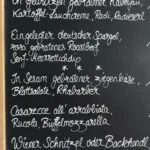 Kartoffel
Eingelegter deutscher Spargel,
rosa gebratenes Roastbeef
Senf-Meerrettichdip
* * *
In Serran gebratener Ziegenkäse,
Blattsalate, Rhabarber
Casarecce all' arrabbiata
Rucola, Büffelmozzarella
Wiener Schnitzel oder Backhendl